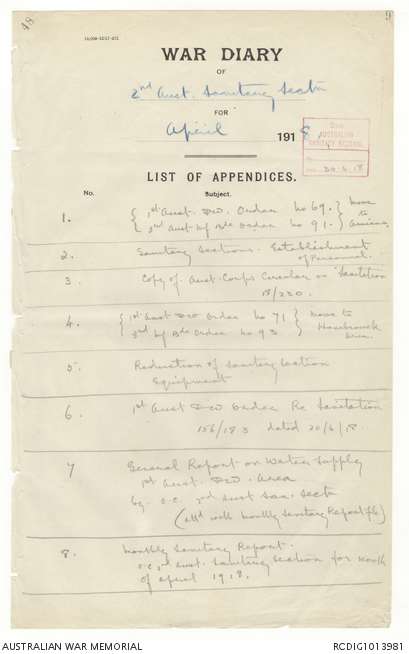 48
9
WAR DIARY
OF
2nd Aust. Sanitary Sectn
FOR
April 1918
2nd
AUSTRALIAN
SANITARY SECTION
No.
Date 30.4.18
LIST OF APPENDICES.
No. Subject.
1. { 1st Aust. Div. Order No 69. } move to Amiens
{ 3rd Aust Inf Bde Order No 91. }
2. Sanitary Sections. Establishment
of Personnel.
3 Copy of Aust. Corps Circular on Sanitation
15/230.
4. { 1st Aust Div Order No 71 } move to
{ 3rd Inf Bde Order No 93 } Hazebrouck area.
5. Reduction of Sanitary Section
Equipment
6. 1st Aust Div Order Re Sanitation
156/183 dated 20/4/18.
7 General Report on Water Supply
1st Aust. Div. Area
by O.C. 2nd Aust San. Sectn
(attd with monthly Sanitary Report file)
8. Monthly Sanitary Report.
O.C. 2nd Aust. Sanitary Section for month
of April 1918.
AUSTRALIAN WAR MEMORIAL
RCDIG1013981